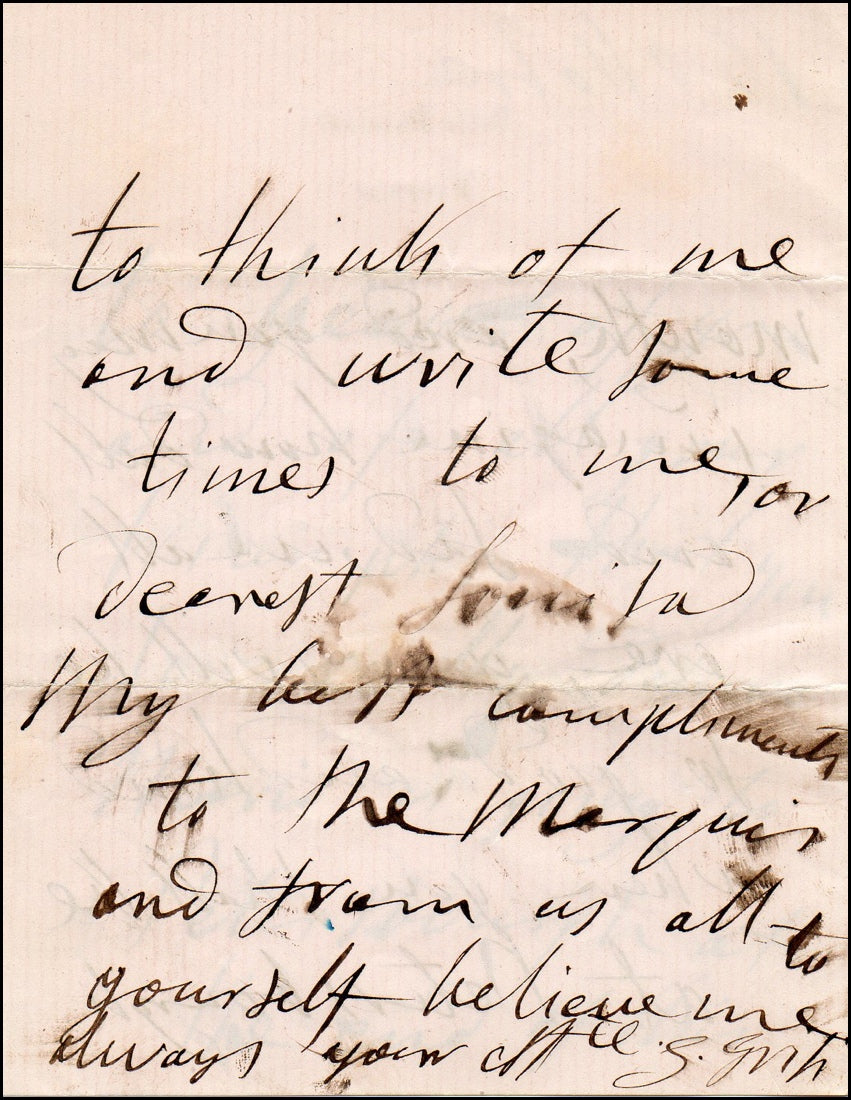 to think of me
and write some
times to me, or
dearest
My best compliments
to the Marquis
and from us all to
yourself believe me
always your affte G. Grisi